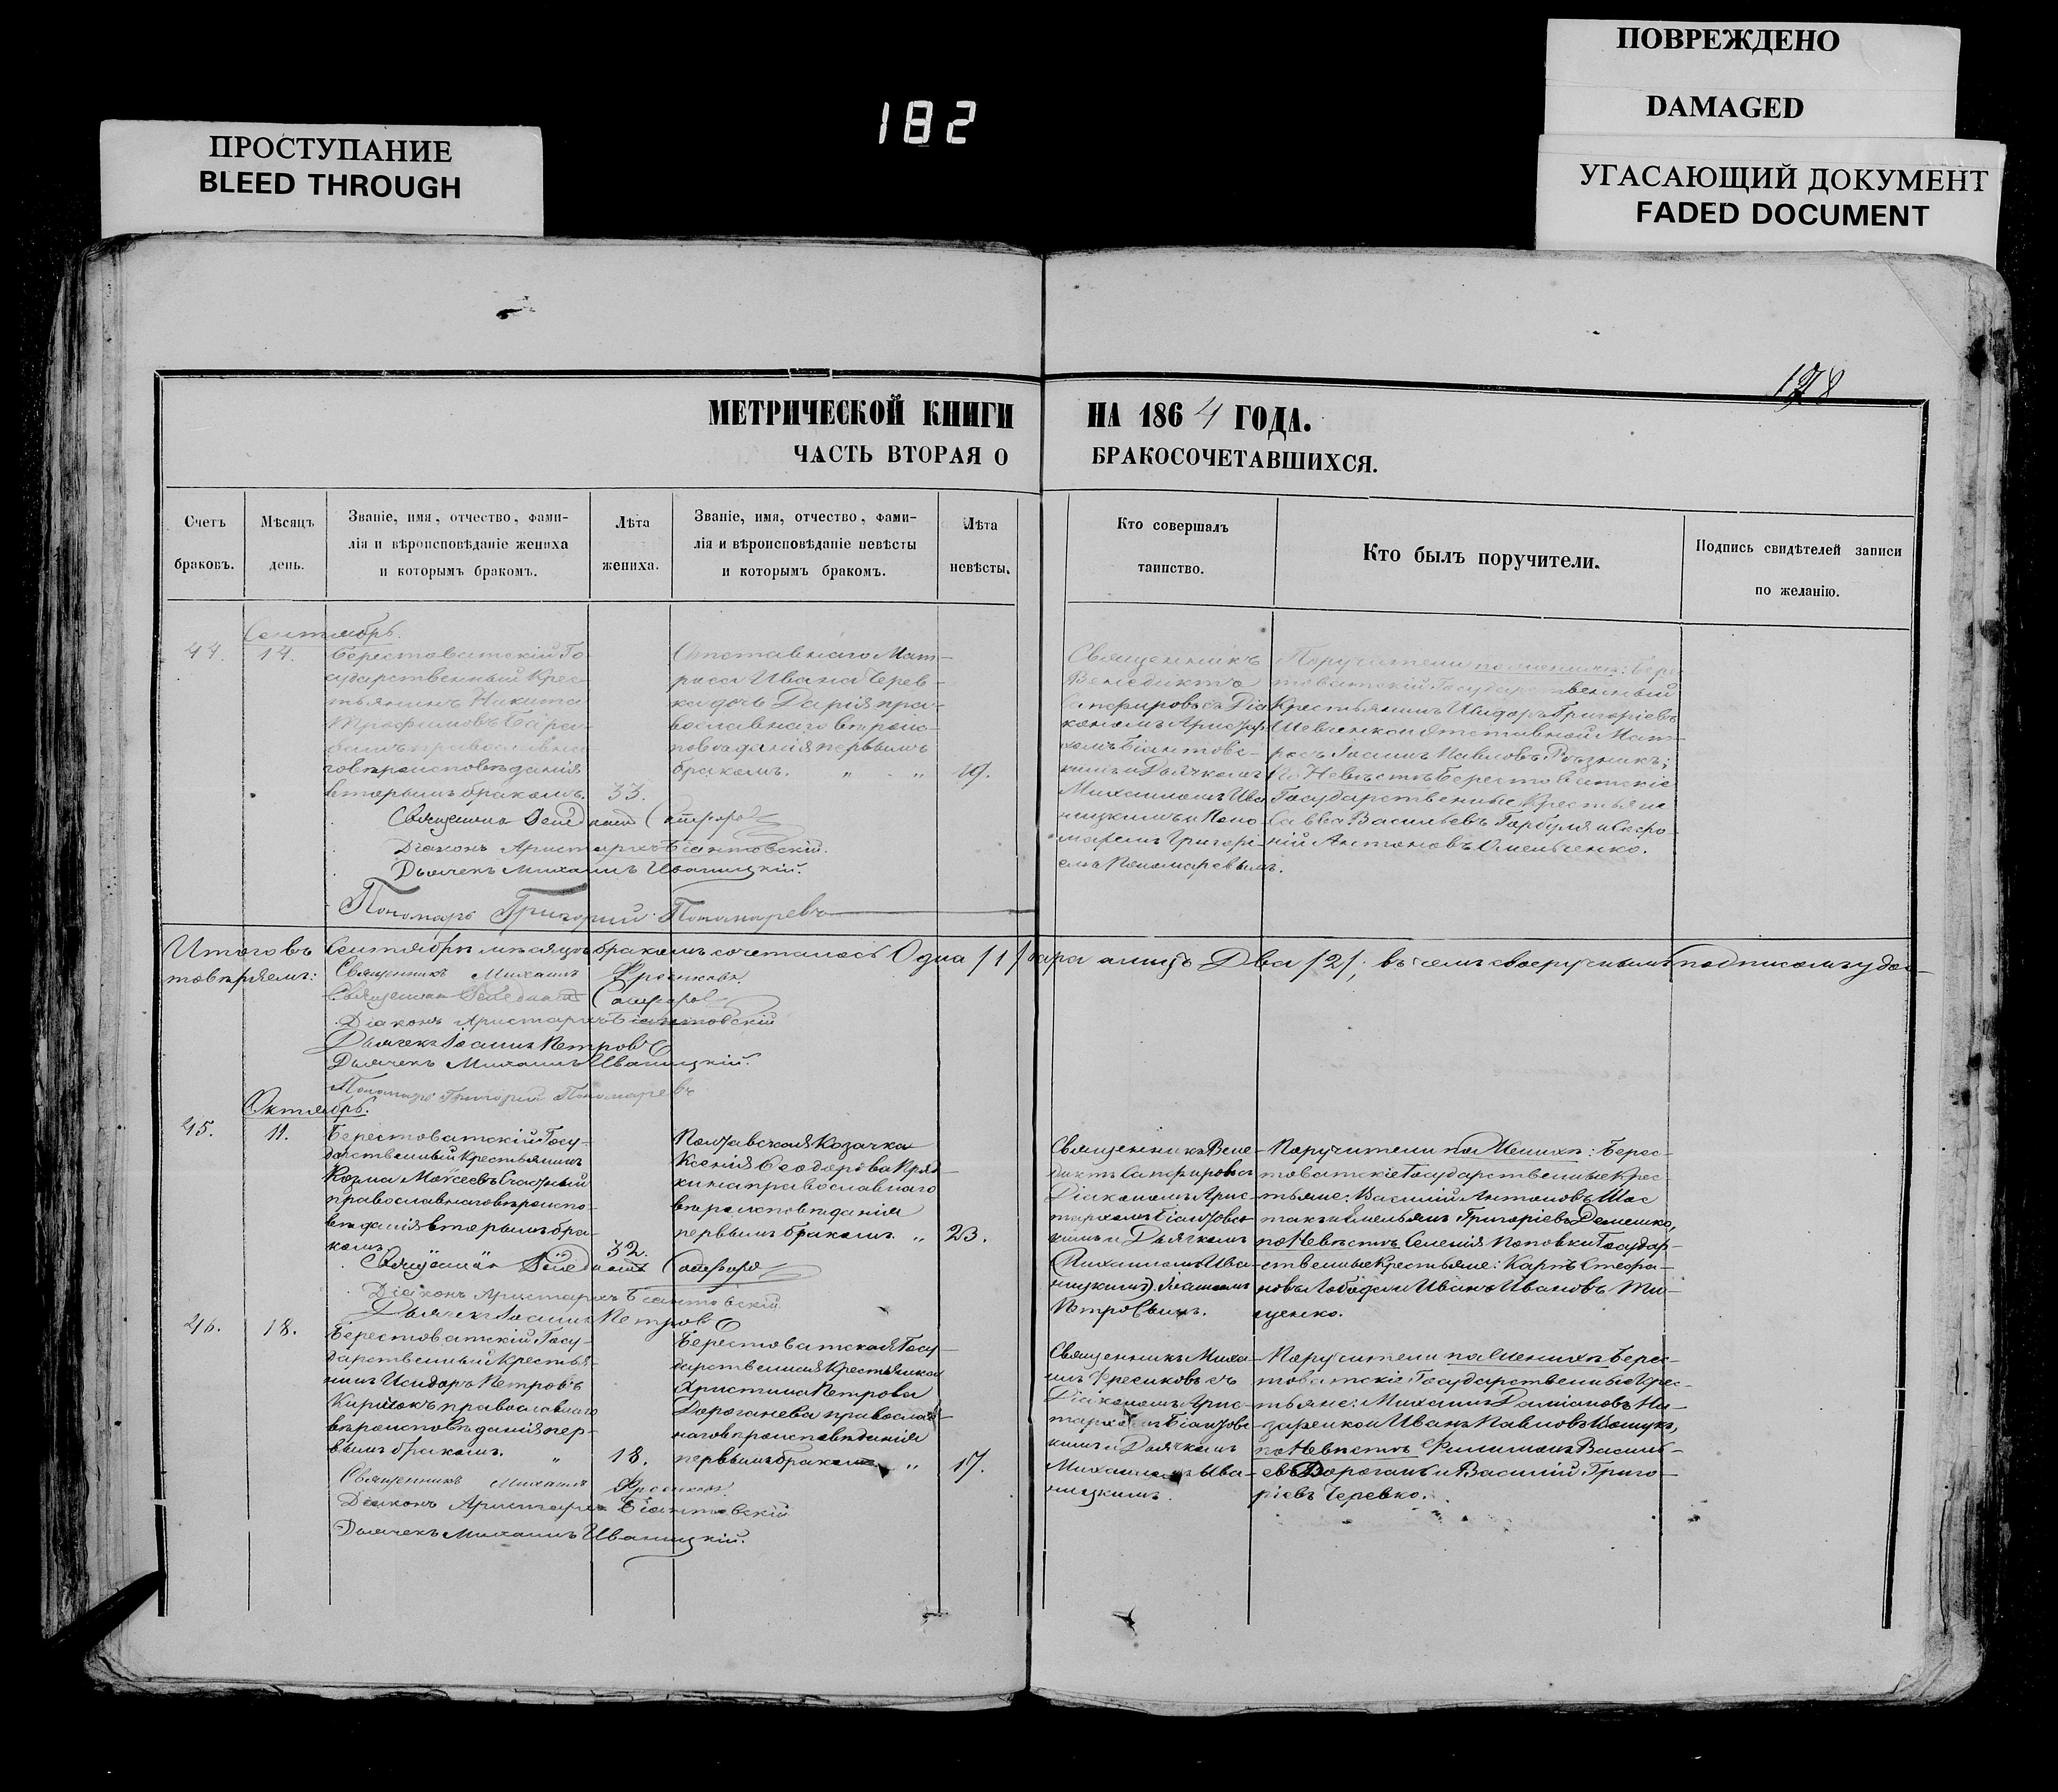 ПОВРЕЖДЕНО
DAMAGED
182
ПРОСТУПАНИЕ
BLEED THROUGH
УГАСАЮЩИЙ ДОКУМЕНТ
FADED DOCUMENT
128
МЕТРИЧЕСКОЙ КНИГИ НА 1864 ГОДА.
ЧАСТЬ ВТОРАЯ О БРАКОСОЧЕТАВШИХСЯ.
Счетъ
браковъ.
Мѣсяцъ
день.
Званіе, имя, отчество, фами-
лія и вѣроисповѣданіе жениха
и которымъ бракомъ.
Лѣта
жениха.
Званіе, имя, отчество, фами-
лія и вѣроисповѣданіе невѣсты
и которымъ бракомъ.
Лѣта
невѣсты.
Кто совершалъ
таинство.
Кто былъ поручители.
Подпись свидѣтелей записи
по желанію.
Сентябрь.
44.
14.
Берестоватскій Го
сударственный Крес-
тьянинъ Никита
Трофимовъ
православна-
го вѣроисповѣданія
вторымъ бракомъ.
33.
Отставнаго Мат-
роса Ивана Черев-
ка дочь Дарія пра-
вославнаго вѣроис-
повѣданія первымъ
бракомъ. „ „
19.
Священникъ
Венедиктъ
Сапфировъ съ Діа
кономъ Аристар
хомъ Біантовс-
кимъ и Дьячкомъ
Михаиломъ Ива
ницкимъ и Поно-
маремъ Григорі-
емъ Пономаревымъ.
Поручители по женихѣ: Бере
стоватскій Государственный
Крестьянинъ Исидоръ Григоріевъ
Шевченко и Отставной Мат-
росъ Іоаннъ Павловъ Рѣзникъ;
По Невѣстѣ Берестоватскіе
Государственные Крестьяне
Савва Васильевъ Гарбуля и Софро-
ній Антоновъ Омельченко.
Священникъ Венедиктъ Сапфировъ
Діаконъ Аристархъ Біантовскій.
Дьячекъ Михаилъ Иваницкій.
Пономарь Григорий Пономаревъ
Итого въ Сентябрѣ мѣсяцѣ бракомъ сочеталось Одна /1/ пара а лицъ Два /2/; въ чемъ своеручнымъ подписомъ удос-
товѣряемъ:
Священникъ Михаилъ Фресиковъ.
Священникъ Венедиктъ Сапфировъ
Діаконъ Аристархъ Біантовскій
Дьячекъ Іоаннъ Петровъ
Дьячекъ Михаилъ Иваницкій.
Пономарь Григорий Пономаревъ
Октябрь.
45.
11.
Берестоватскій Госу-
дарственный Крестьянинъ
Козма Моѵсеевъ Счастный
православнаго вѣроиспо-
вѣданія вторымъ бра-
комъ.
32.
Полтавская Козачка
Ксенія Ѳеодорова
православнаго
вѣроисповѣданія
первымъ бракомъ. „
23.
Священникъ Вене-
диктъ Сапфировъ съ
Діакономъ Арис-
тархомъ Біантовс-
кимъ и Дьячкомъ
(Михаиломъ Ива-
ницкимъ) Іоанномъ
Петровымъ.
Поручители по Женихѣ: Берес-
товатскіе Государственные Крес-
тьяне: Василій Антоновъ Шос
такъ и Емельянъ Григоріевъ Демешко,
по Невѣстѣ Селенія Поповки Государ-
ственные Крестьяне: Карпъ Стефа-
новъ Лобода и Иванъ Ивановъ Ти-
щенко.
Священникъ Венедиктъ Сапфировъ
Діаконъ Аристархъ Біантовскій.
Дьячекъ Іоаннъ Петровъ
46.
18.
Берестоватскій Госу-
дарственный Крестья-
нинъ Исидоръ Петровъ
Кирилокъ православнаго
вѣроисповѣданія пер-
вымъ бракомъ. „
18.
Берестоватская Госу-
дарственная Крестьянка
Христина Петрова
Дороганева православ-
наго вѣроисповѣданія
первымъ бракомъ. „
17.
Священникъ Миха-
илъ Фресиковъ съ
Діакономъ Арис-
тархомъ Біантовс-
кимъ и Дьячкомъ
Михаиломъ Ива-
ницкимъ.
Поручители по Женихѣ Берес-
товатскіе Государственные Крес-
тьяне: Михаилъ Даміановъ На-
заренко и Иванъ Павловъ
по Невѣстѣ Филимонъ Василь-
евъ Дороганъ и Василій Григо-
ріевъ Черевко.
Священникъ Михаилъ Фресиковъ.
Діаконъ Аристархъ Біантовскій
Дьячекъ Михаилъ Иваницкій.